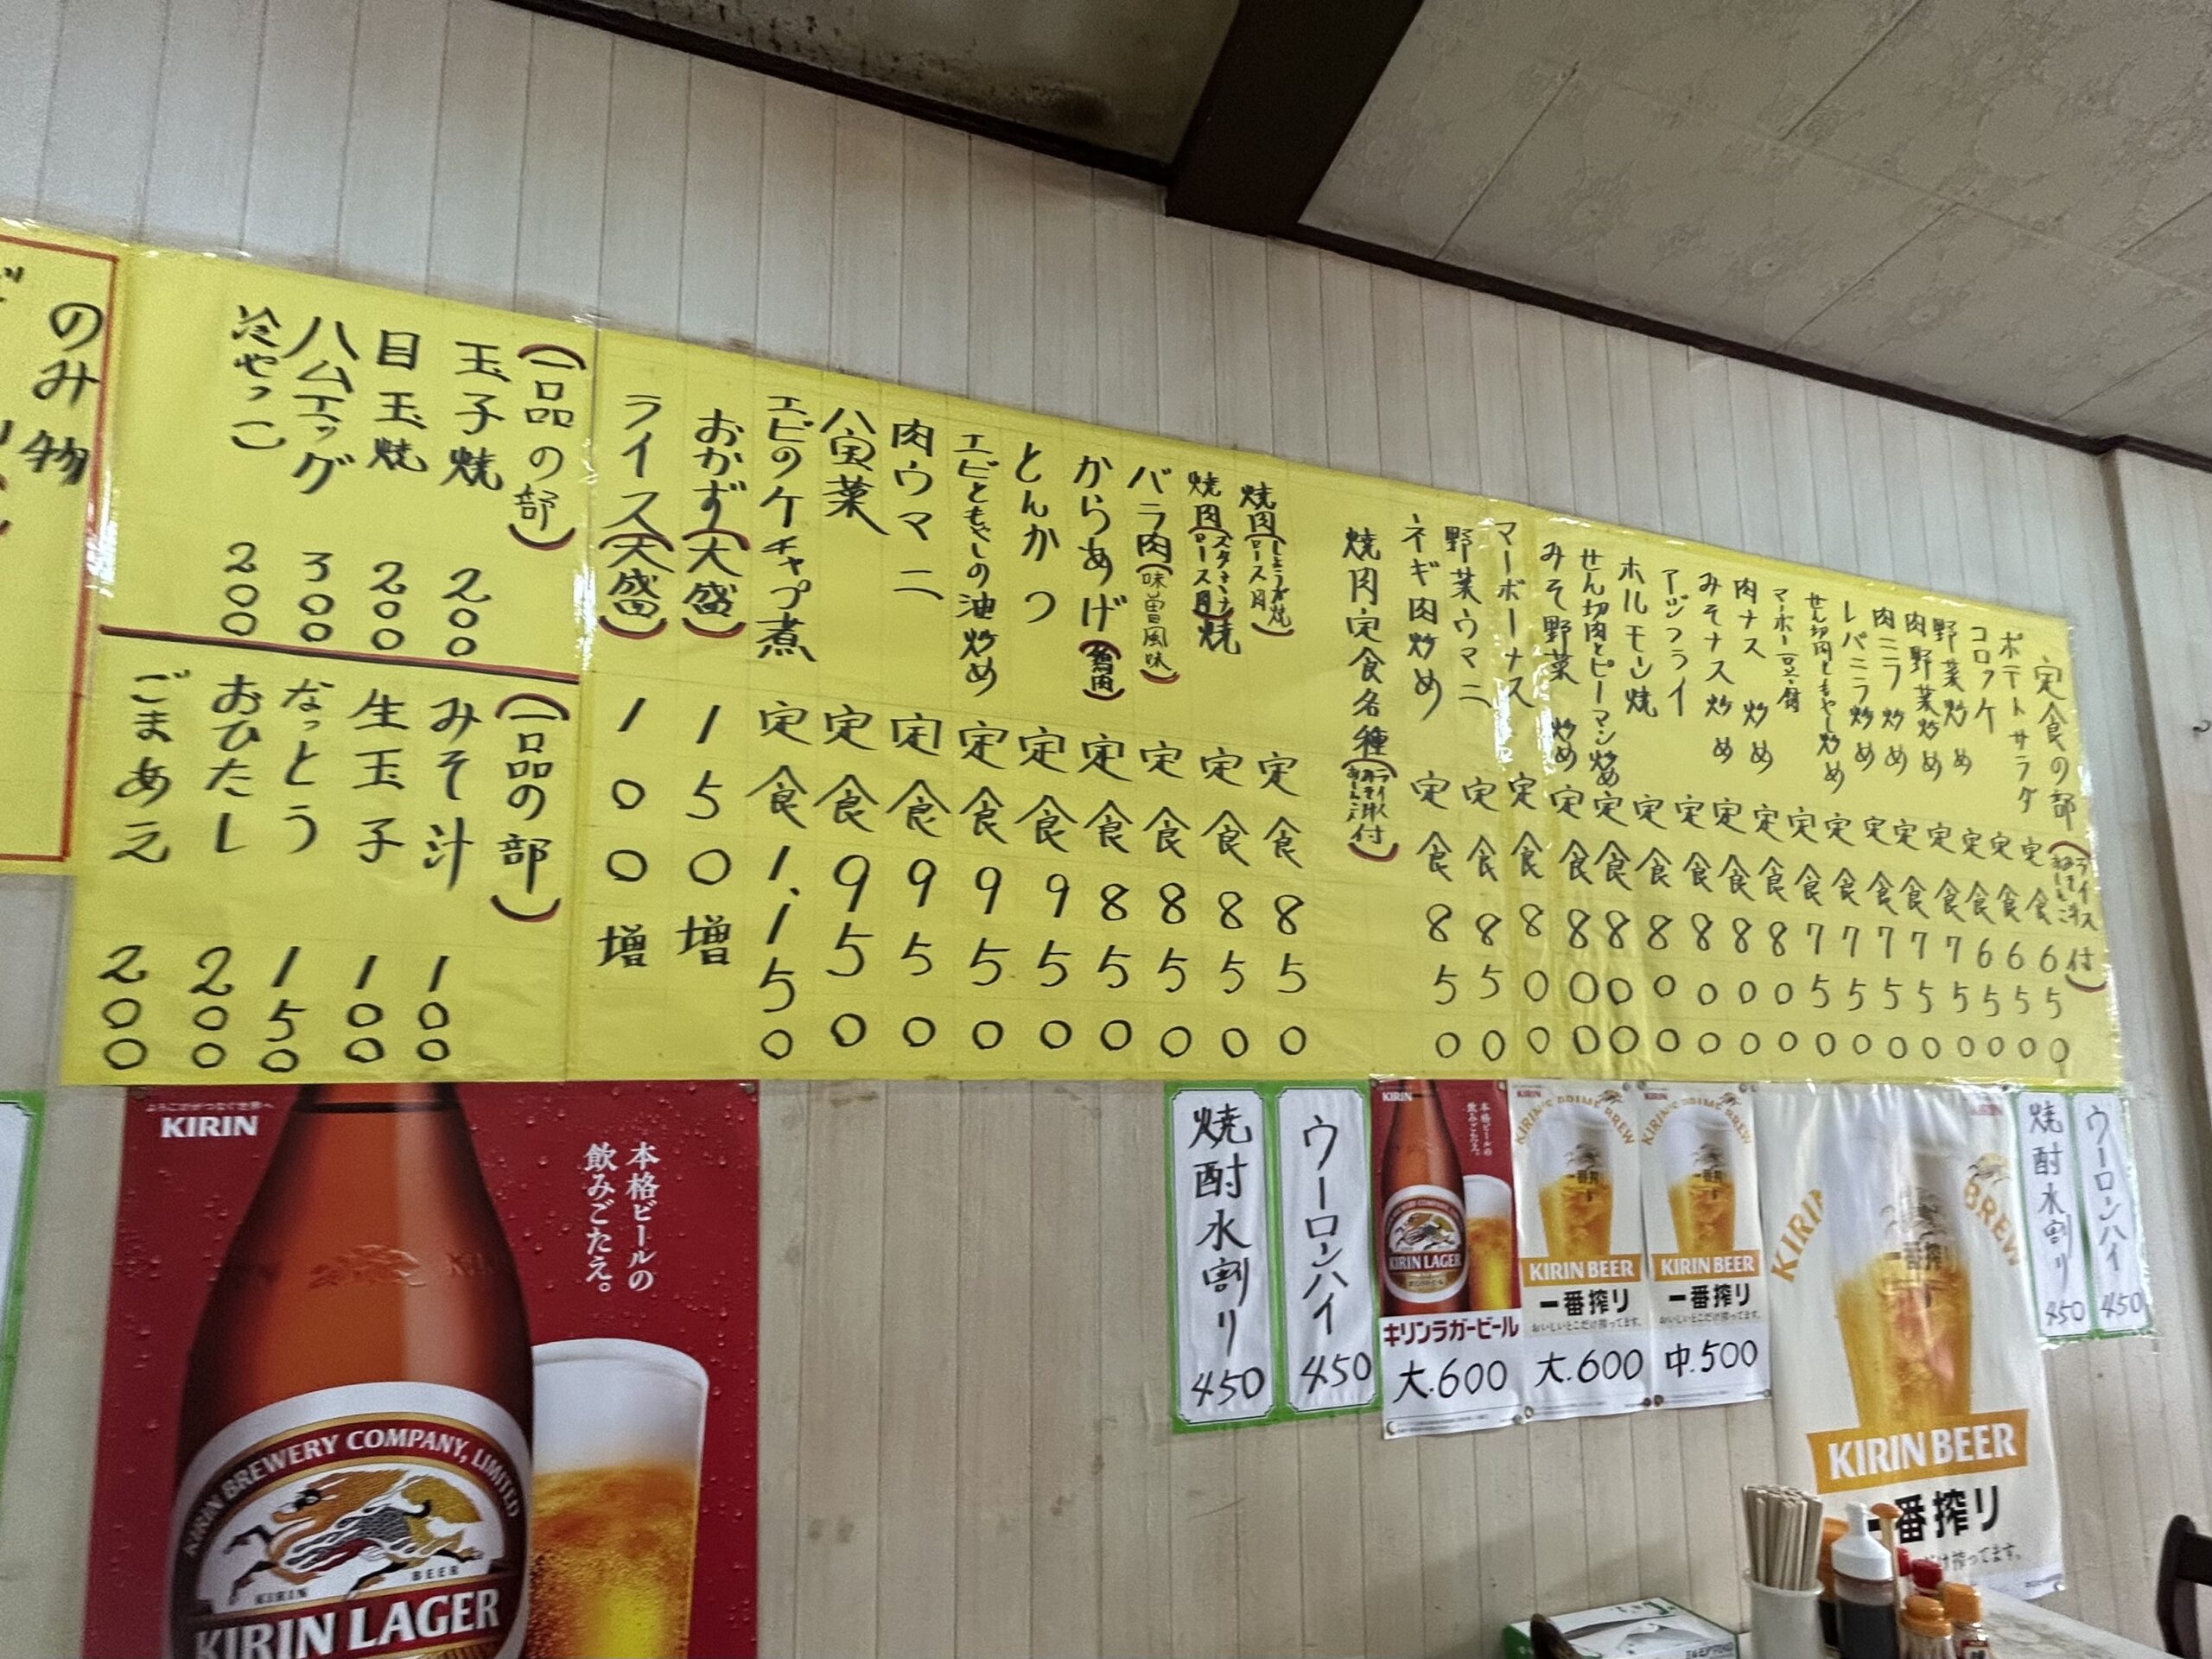 定食の部(ライス みそ汁 おしんこ付)
ポテトサラダ 定食 650
コロッケ 定食 650
野菜炒め 定食 650
肉野菜炒め 定食 750
肉ニラ炒め 定食 750
レバニラ炒め 定食 750
せん切肉ともやし炒め 定食 750
マーボー豆腐 定食 750
肉ナス炒め 定食 800
みそナス炒め 定食 800
アジフライ 定食 800
ホルモン焼 定食 800
せん切肉とピーマン炒め 定食 800
みそ野菜炒め 定食 800
マーボーナス 定食 800
野菜ウマニ 定食 850
ネギ肉炒め 定食 850
焼肉定食各種(ライス みそ汁 おしんこ付)
焼肉(しょうが焼 ロース肉) 定食 850
焼肉(スタミナ焼 ロース肉) 定食 850
バラ肉(味噌風味) 定食 850
からあげ(鶏肉) 定食 850
とんかつ 定食 950
エビともやしの油炒め 定食 950
肉ウマニ 定食 950
八宝菜 定食 950
エビのケチャップ煮 定食 1.150
おかず(大盛) 150増
ライス(大盛) 100増
(一品の部)
玉子焼 200
目玉焼 200
ハムエッグ 300
冷やっこ 200
(一品の部)
みそ汁 100
生玉子 100
なっとう 150
おひたし 200
ごまあえ 200
のみ物
よろこびがつなぐ世界へ
KIRIN
本格ビールの
飲みごたえ。
KIRIN BREWERY COMPANY, LIMITED
KIRIN BEER
KIRIN LAGER
焼酎水割り 450
ウーロンハイ 450
KIRIN
本格ビールの
飲みごたえ。
KIRIN LAGER
キリンラガービール
大.600
KIRIN'S PRIME BREW
一番搾り
KIRIN BEER
一番搾り
おいしいとこだけ搾ってます。
大.600
KIRIN
KIRIN'S PRIME BREW
一番搾り
KIRIN BEER
一番搾り
おいしいとこだけ搾ってます。
中.500
KIRIN
BREW
一番搾り
KIRIN BEER
一番搾り
だけ搾ってます。
焼酎水割り 450
ウーロンハイ 450